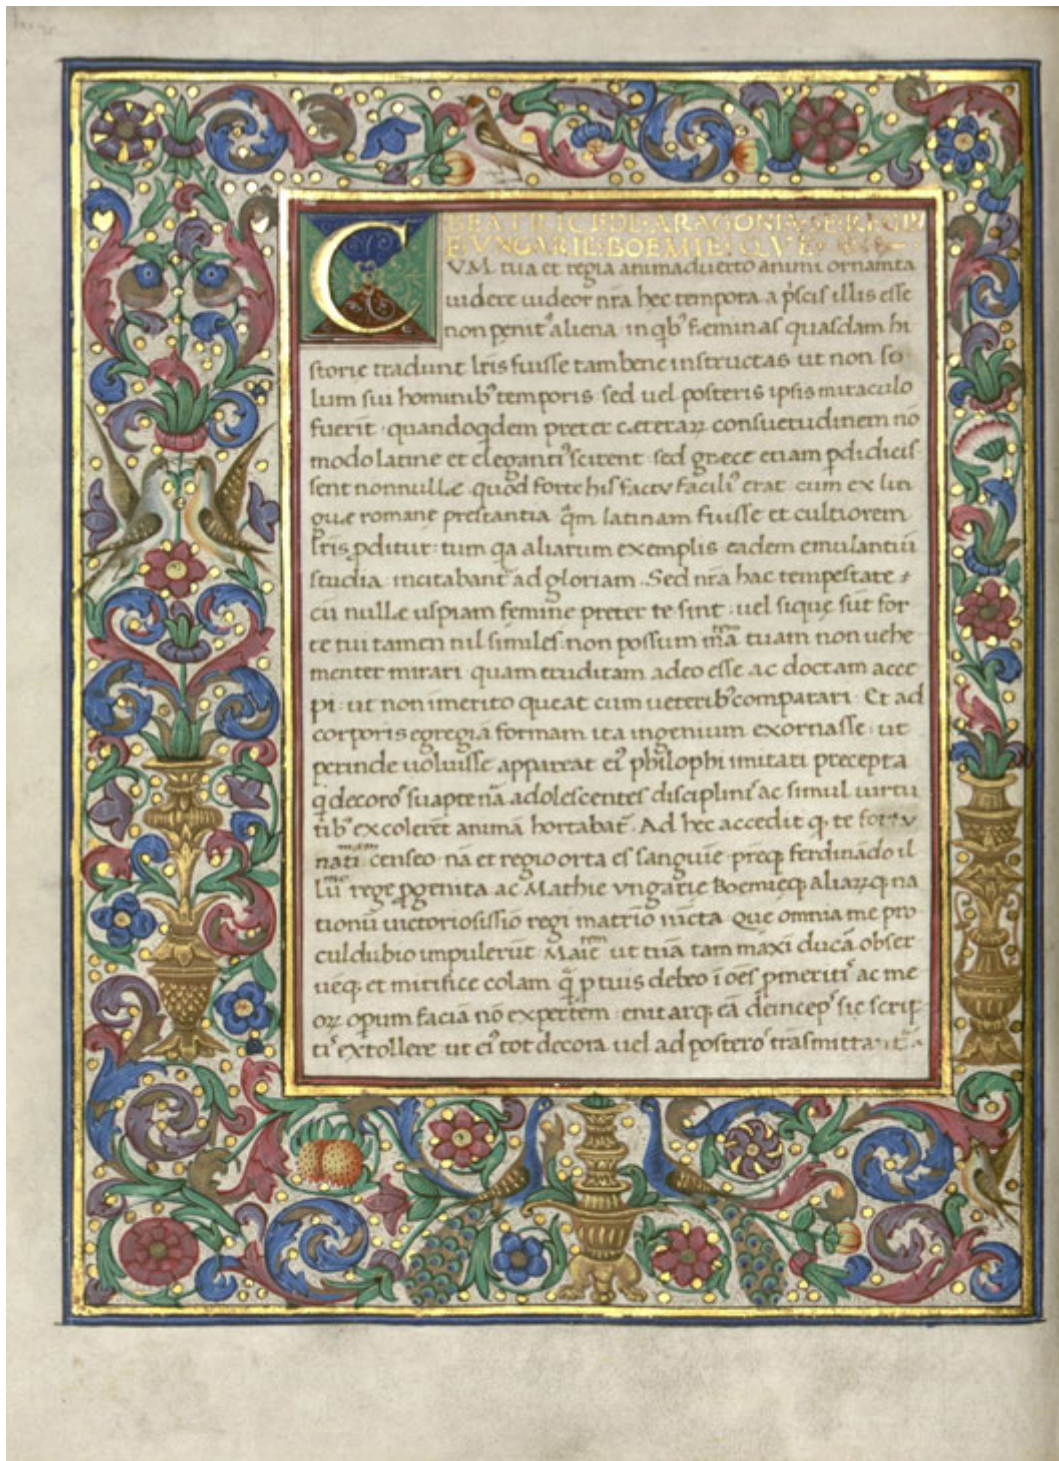 BEATRICE DE ARAGONIA SE REGI
E VNGARIE BOEMIE QVE
CVM tua et regia animaduerto animi ornamta
uidere uideor nr̄a hec tempora a p̄scis illis esse
non penitꝰ aliena in qbꝰ fæminas quasdam hi
storie tradunt lr̄is fuisse tam bene instructas ut non so
lum sui hominibꝰ temporis sed uel posteris ipsis miraculo
fuerit quandoqdem preter cæteraꝝ consuetudinem nō
modo latine et elegantiꝰ scirent sed græce etiam pdidicis
sent nonnullæ quod forte his factv faciliꝰ erat cum ex lin
guæ romanę prestantia q̄m latinam fuisse et cultiorem
lr̄is pditur: tum qa aliarum exemplis eadem emulantiū
studia incitabant̄ ad gloriam. Sed nr̄a hac tempestate
cū nullæ uspiam femine preter te sint uel siquę sūt for
te tui tamen nil similes non possum mr̄ā tuam non uehe
menter mirari quam eruditam adeo esse ac doctam acce
pi ut non īmerito queat cum ueteribꝰ comparari Et ad
corporis egregiā formam ita ingenium exornasse ut
perinde uoluisse appareat eiꝰ philophi imitari precepta
q̄ decoroˢ suapte nā adolescentes disciplinīˢ ac simul uirtu
tibꝰ excolerēt animā hortabat̄ Ad hec accedit q te fortv
nati censeo nā et regio orta es sanguīe preq ferdinādo il
lū rege pgenita ac Mathie vngarie Boemieq aliaꝝq na
tionū uictoriosissīo regi matrīo iūcta Que omnia me pro
culdubio impulerūt Maie ut tuā tam maxī ducā obser
uēq et mirifice colam q̄ p tuis debeo ī oēs pmeritīˢ ac me
oꝝ opum faciā nō expertem enitarq eā deincepˢ sic scrip
tiˢ extollere ut eiꝰ tot decora uel ad posteroˢ trāsmittant̄